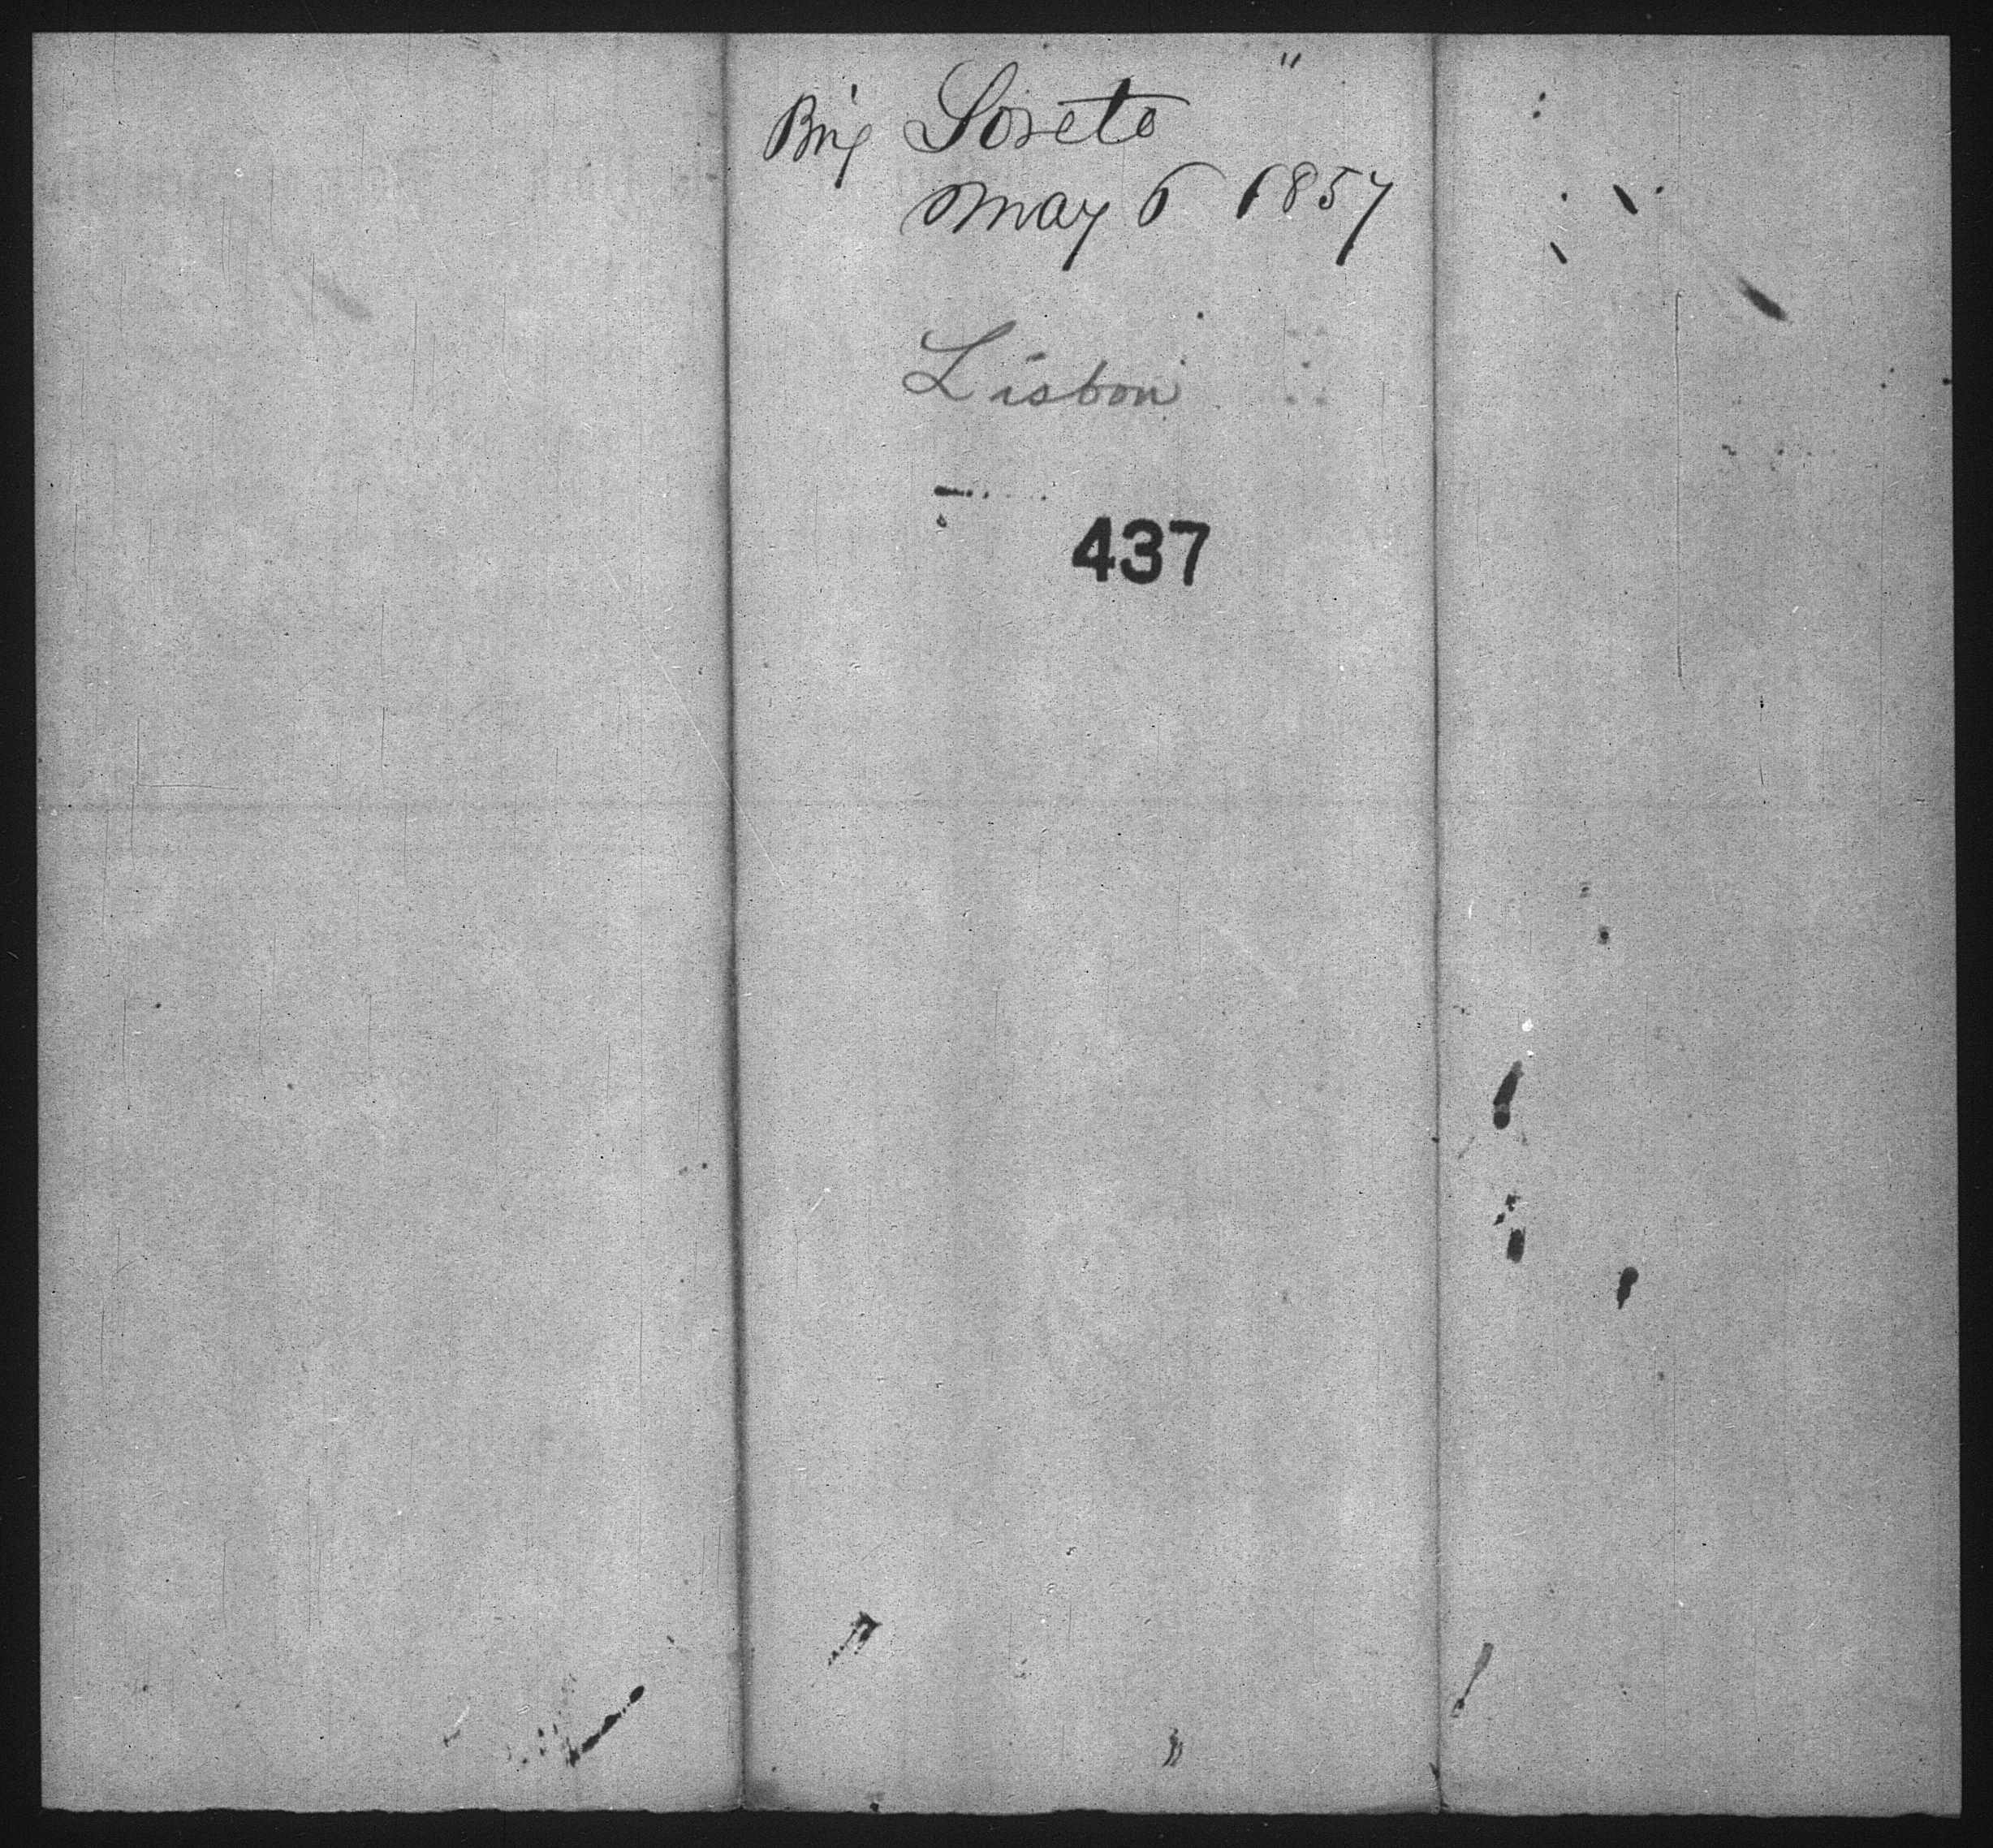 Brig Loreto "
May 6 1857
Lisbon
437